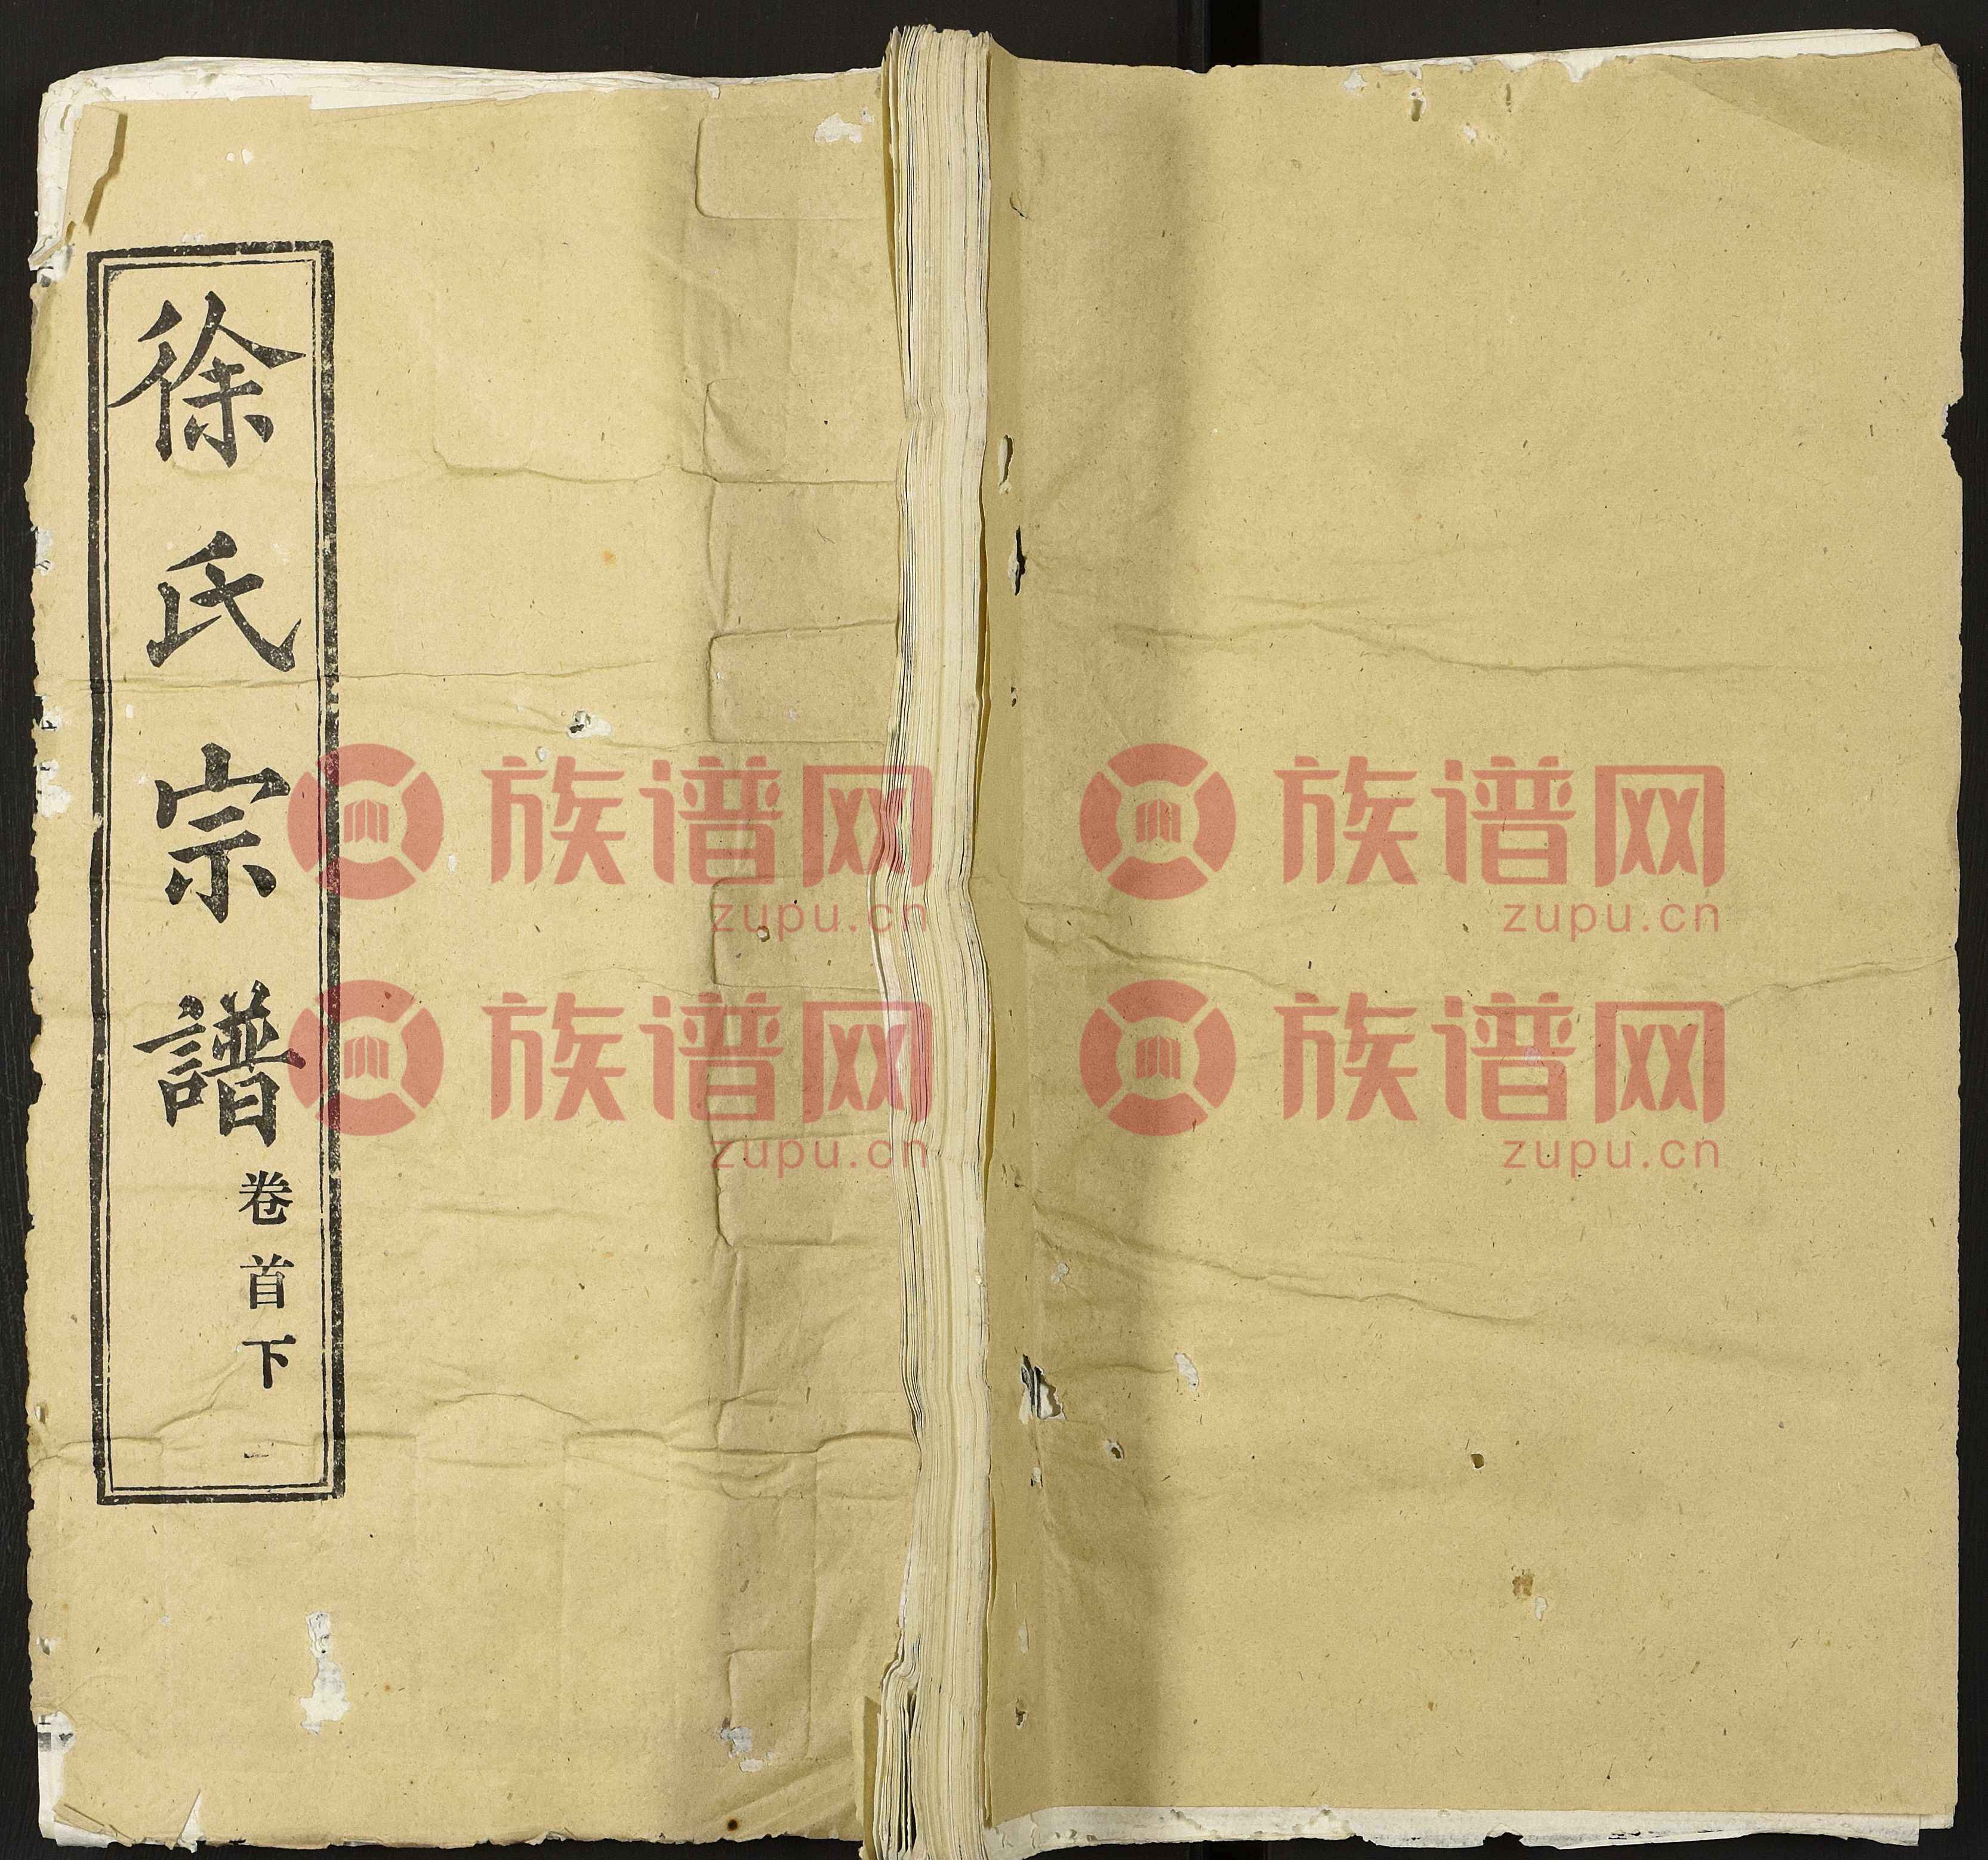 徐氏宗譜
卷首下
一
族谱网
zupu.cn
族谱网
zupu.cn
族谱网
zupu.cn
族谱网
zupu.cn